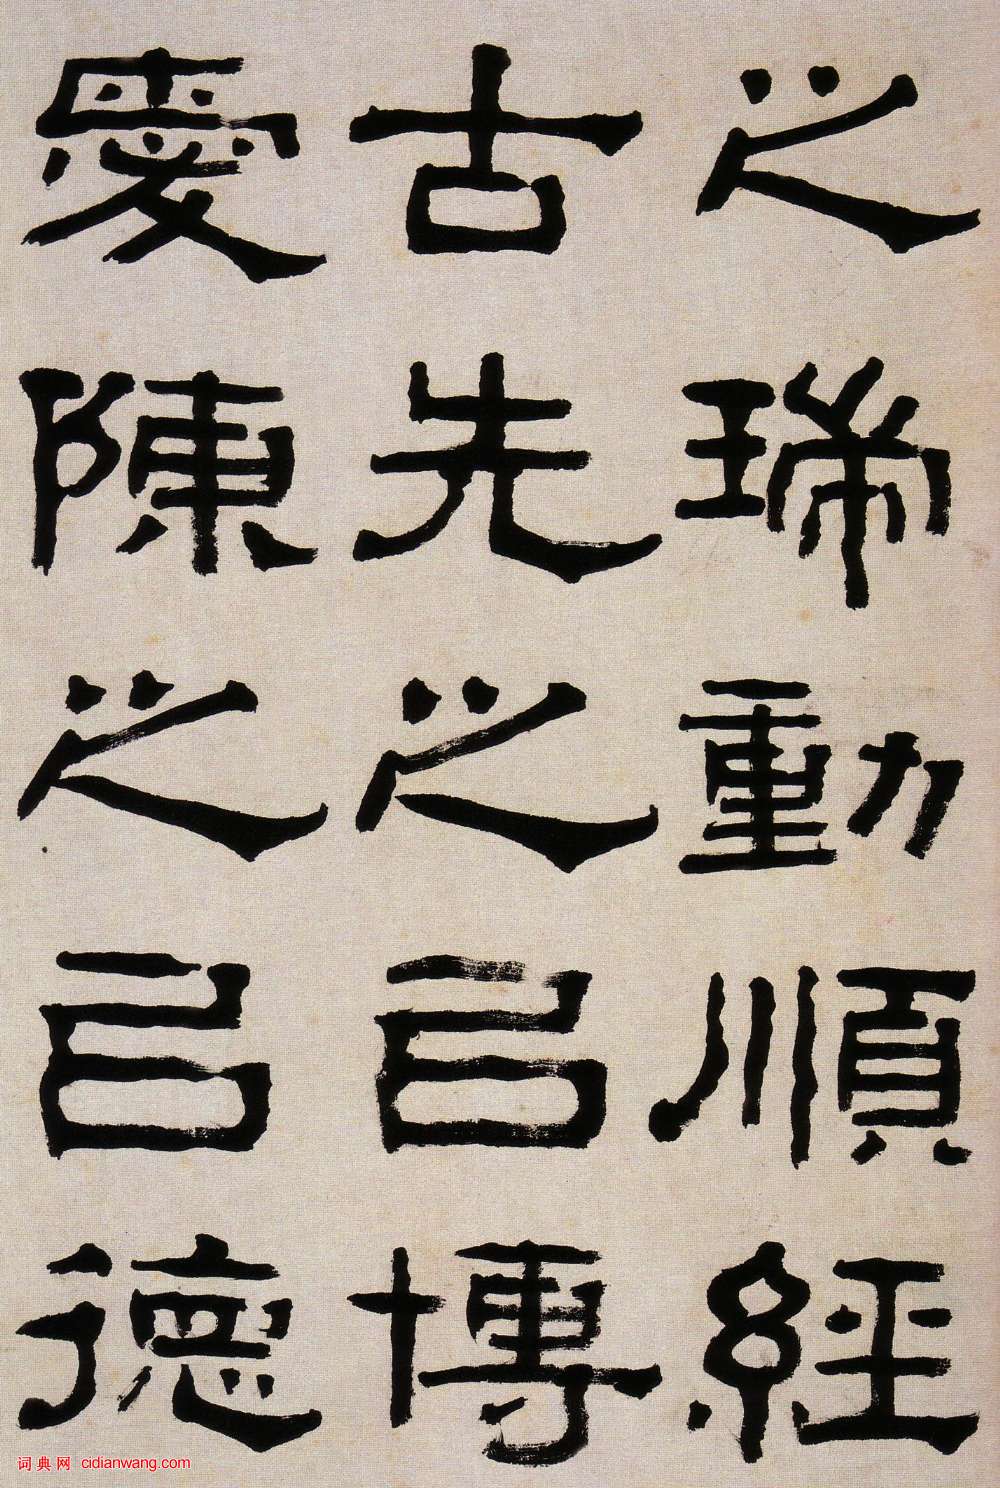 之瑞動順經
古先之以博
愛陳之以德
词典网 cidianwang.com